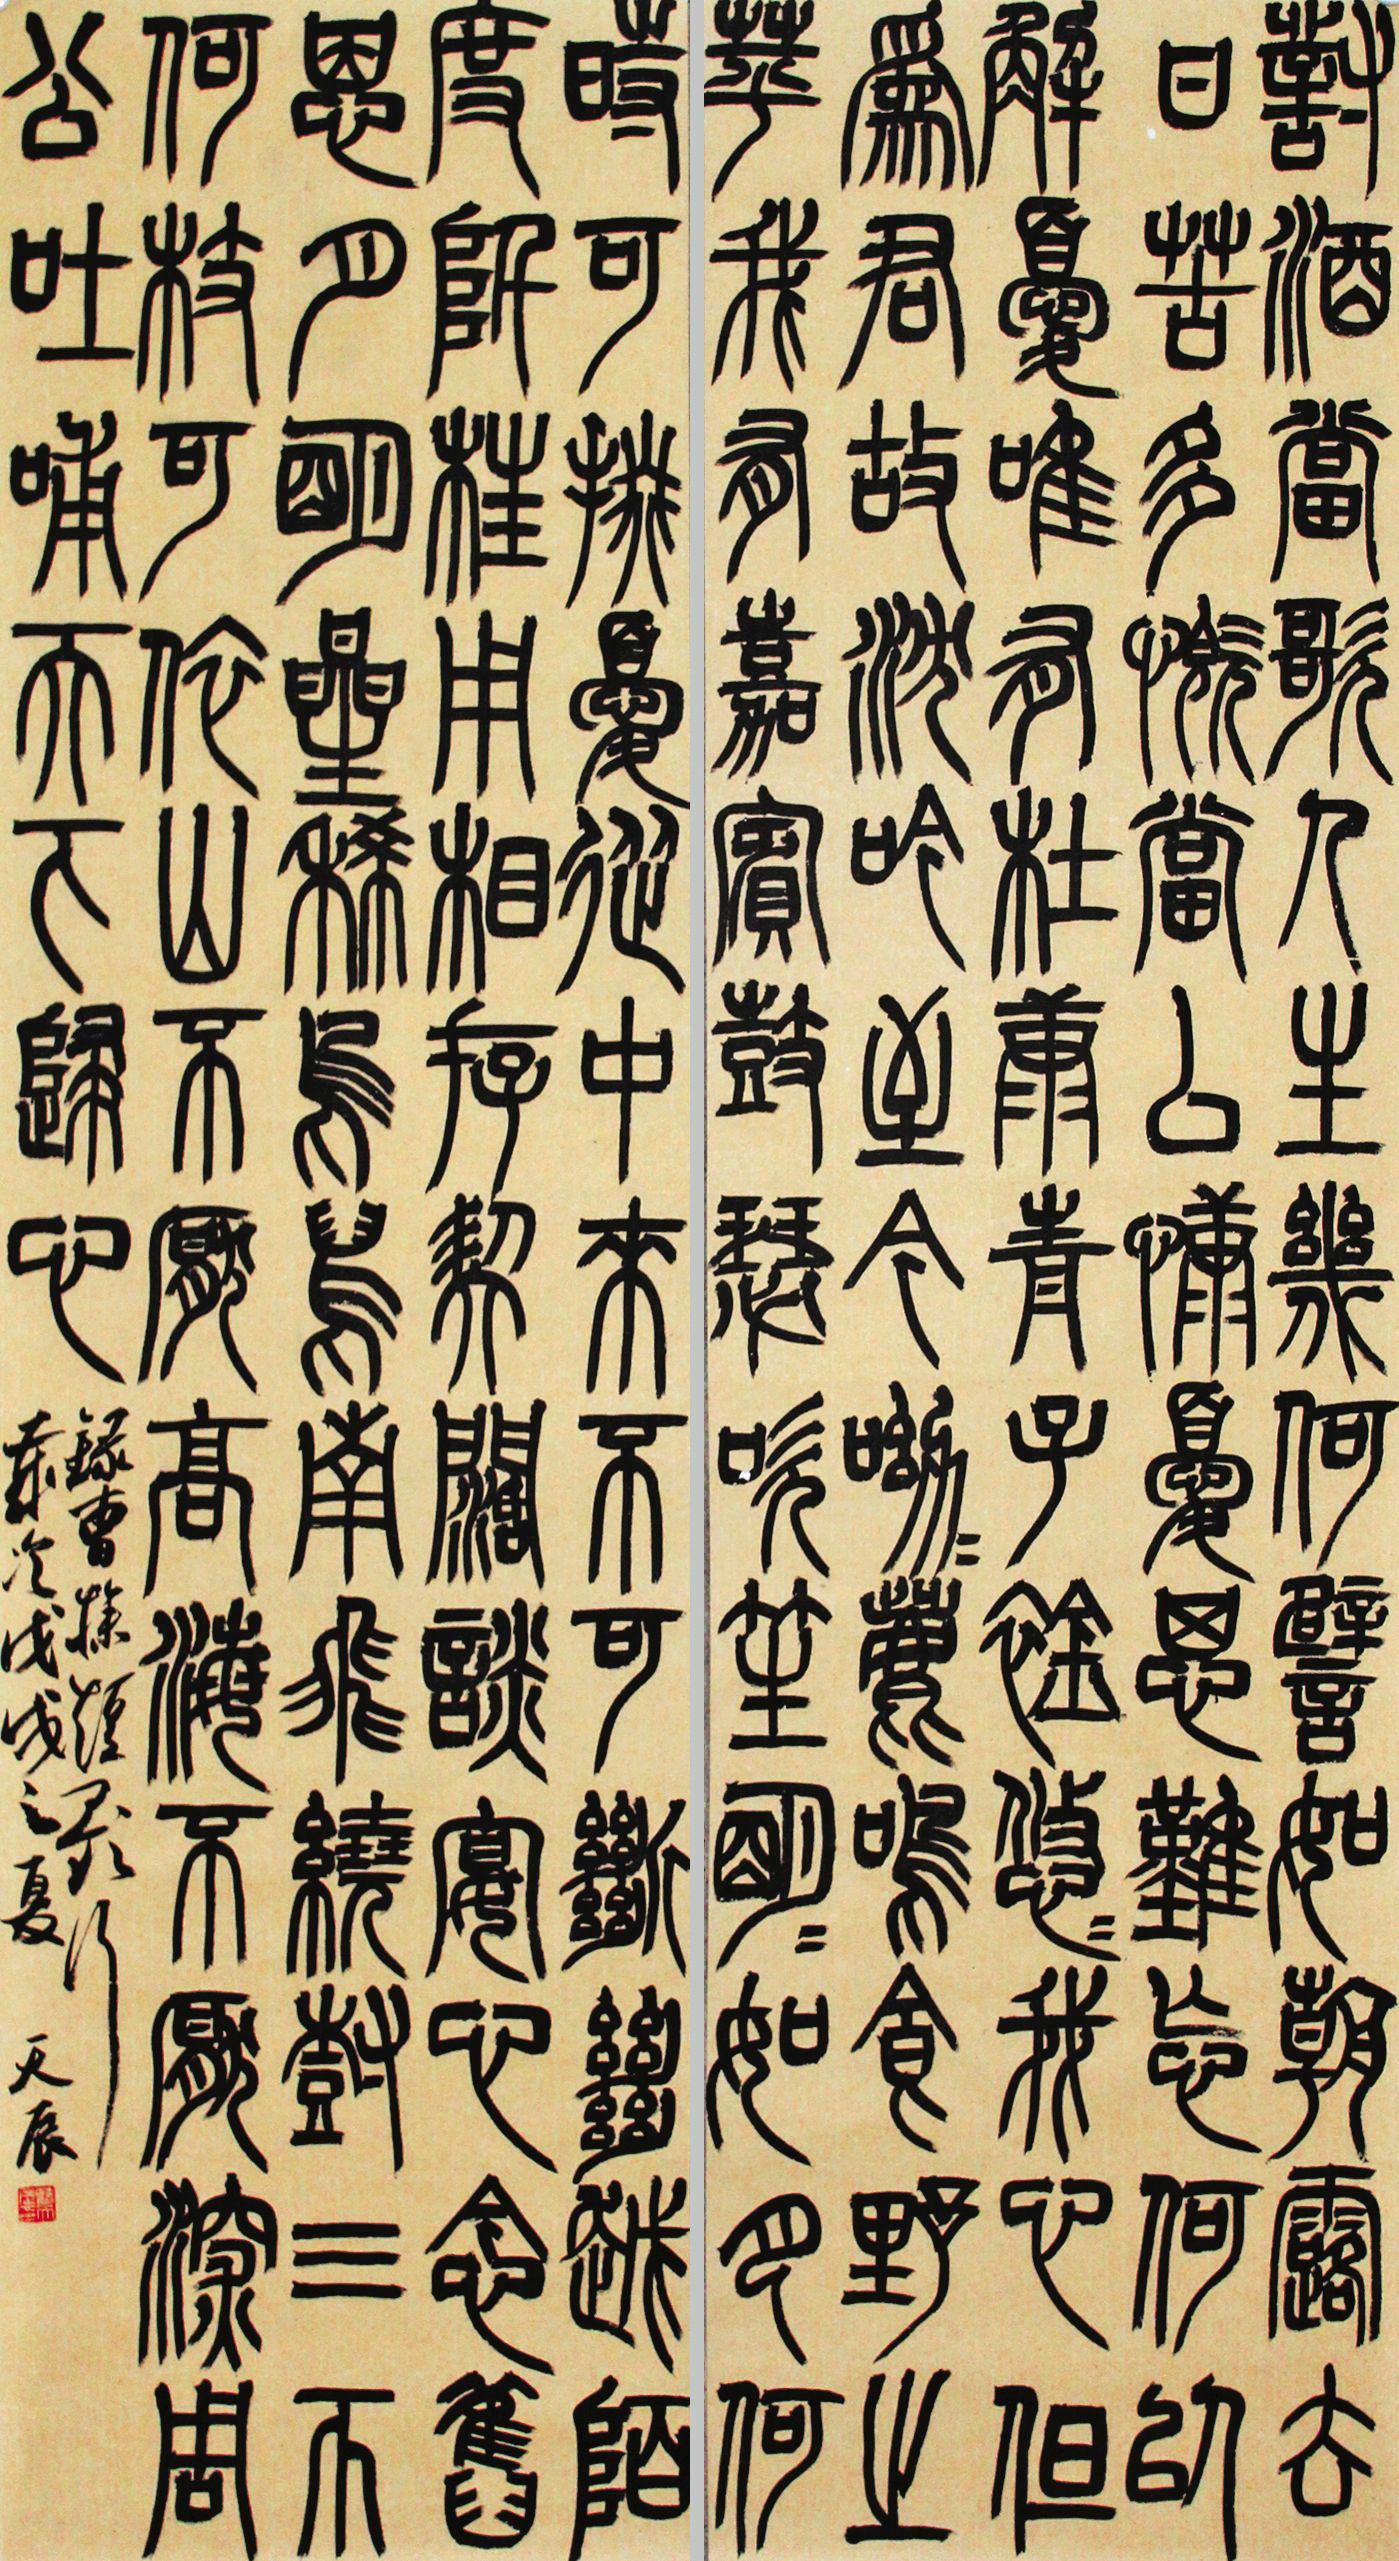 對酒當歌人生幾何譬如朝露去
日苦多慨當以慷憂思難忘何以
解憂唯有杜康青子衿悠〻我心但
為君故沈吟至今呦〻鹿鳴食野之
苹我有嘉賓鼓瑟吹笙明〻如月何
時可掇憂從中來不可斷絕越陌
度阡枉用相存契闊談宴心念舊
恩月明星稀烏鵲南飛繞樹三匝
何枝可依山不厭高海不厭深周
公吐哺天下歸心
錄曹操短歌行
歲次戊戌之夏 天辰